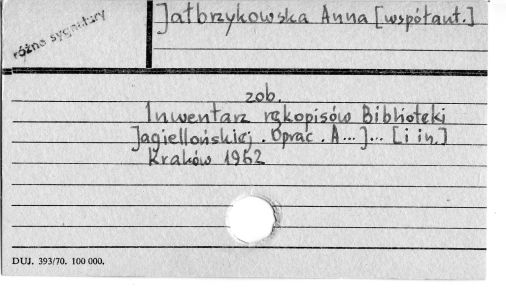 Jałbrzykowska Anna [współaut.]
różne sygnatury
zob.
Inwentarz rękopisów Biblioteki
Jagiellońskiej. Oprac. A... J... [i in.]
Kraków 1962
DUJ. 393/70. 100 000.